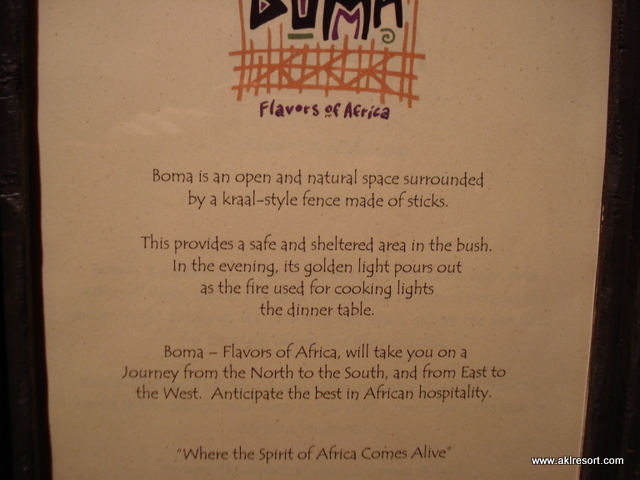 BOMA
Flavors of Africa
Boma is an open and natural space surrounded
by a kraal-style fence made of sticks.
This provides a safe and sheltered area in the bush.
In the evening, its golden light pours out
as the fire used for cooking lights
the dinner table.
Boma – Flavors of Africa, will take you on a
Journey from the North to the South, and from East to
the West. Anticipate the best in African hospitality.
"Where the Spirit of Africa Comes Alive"
www.aklresort.com